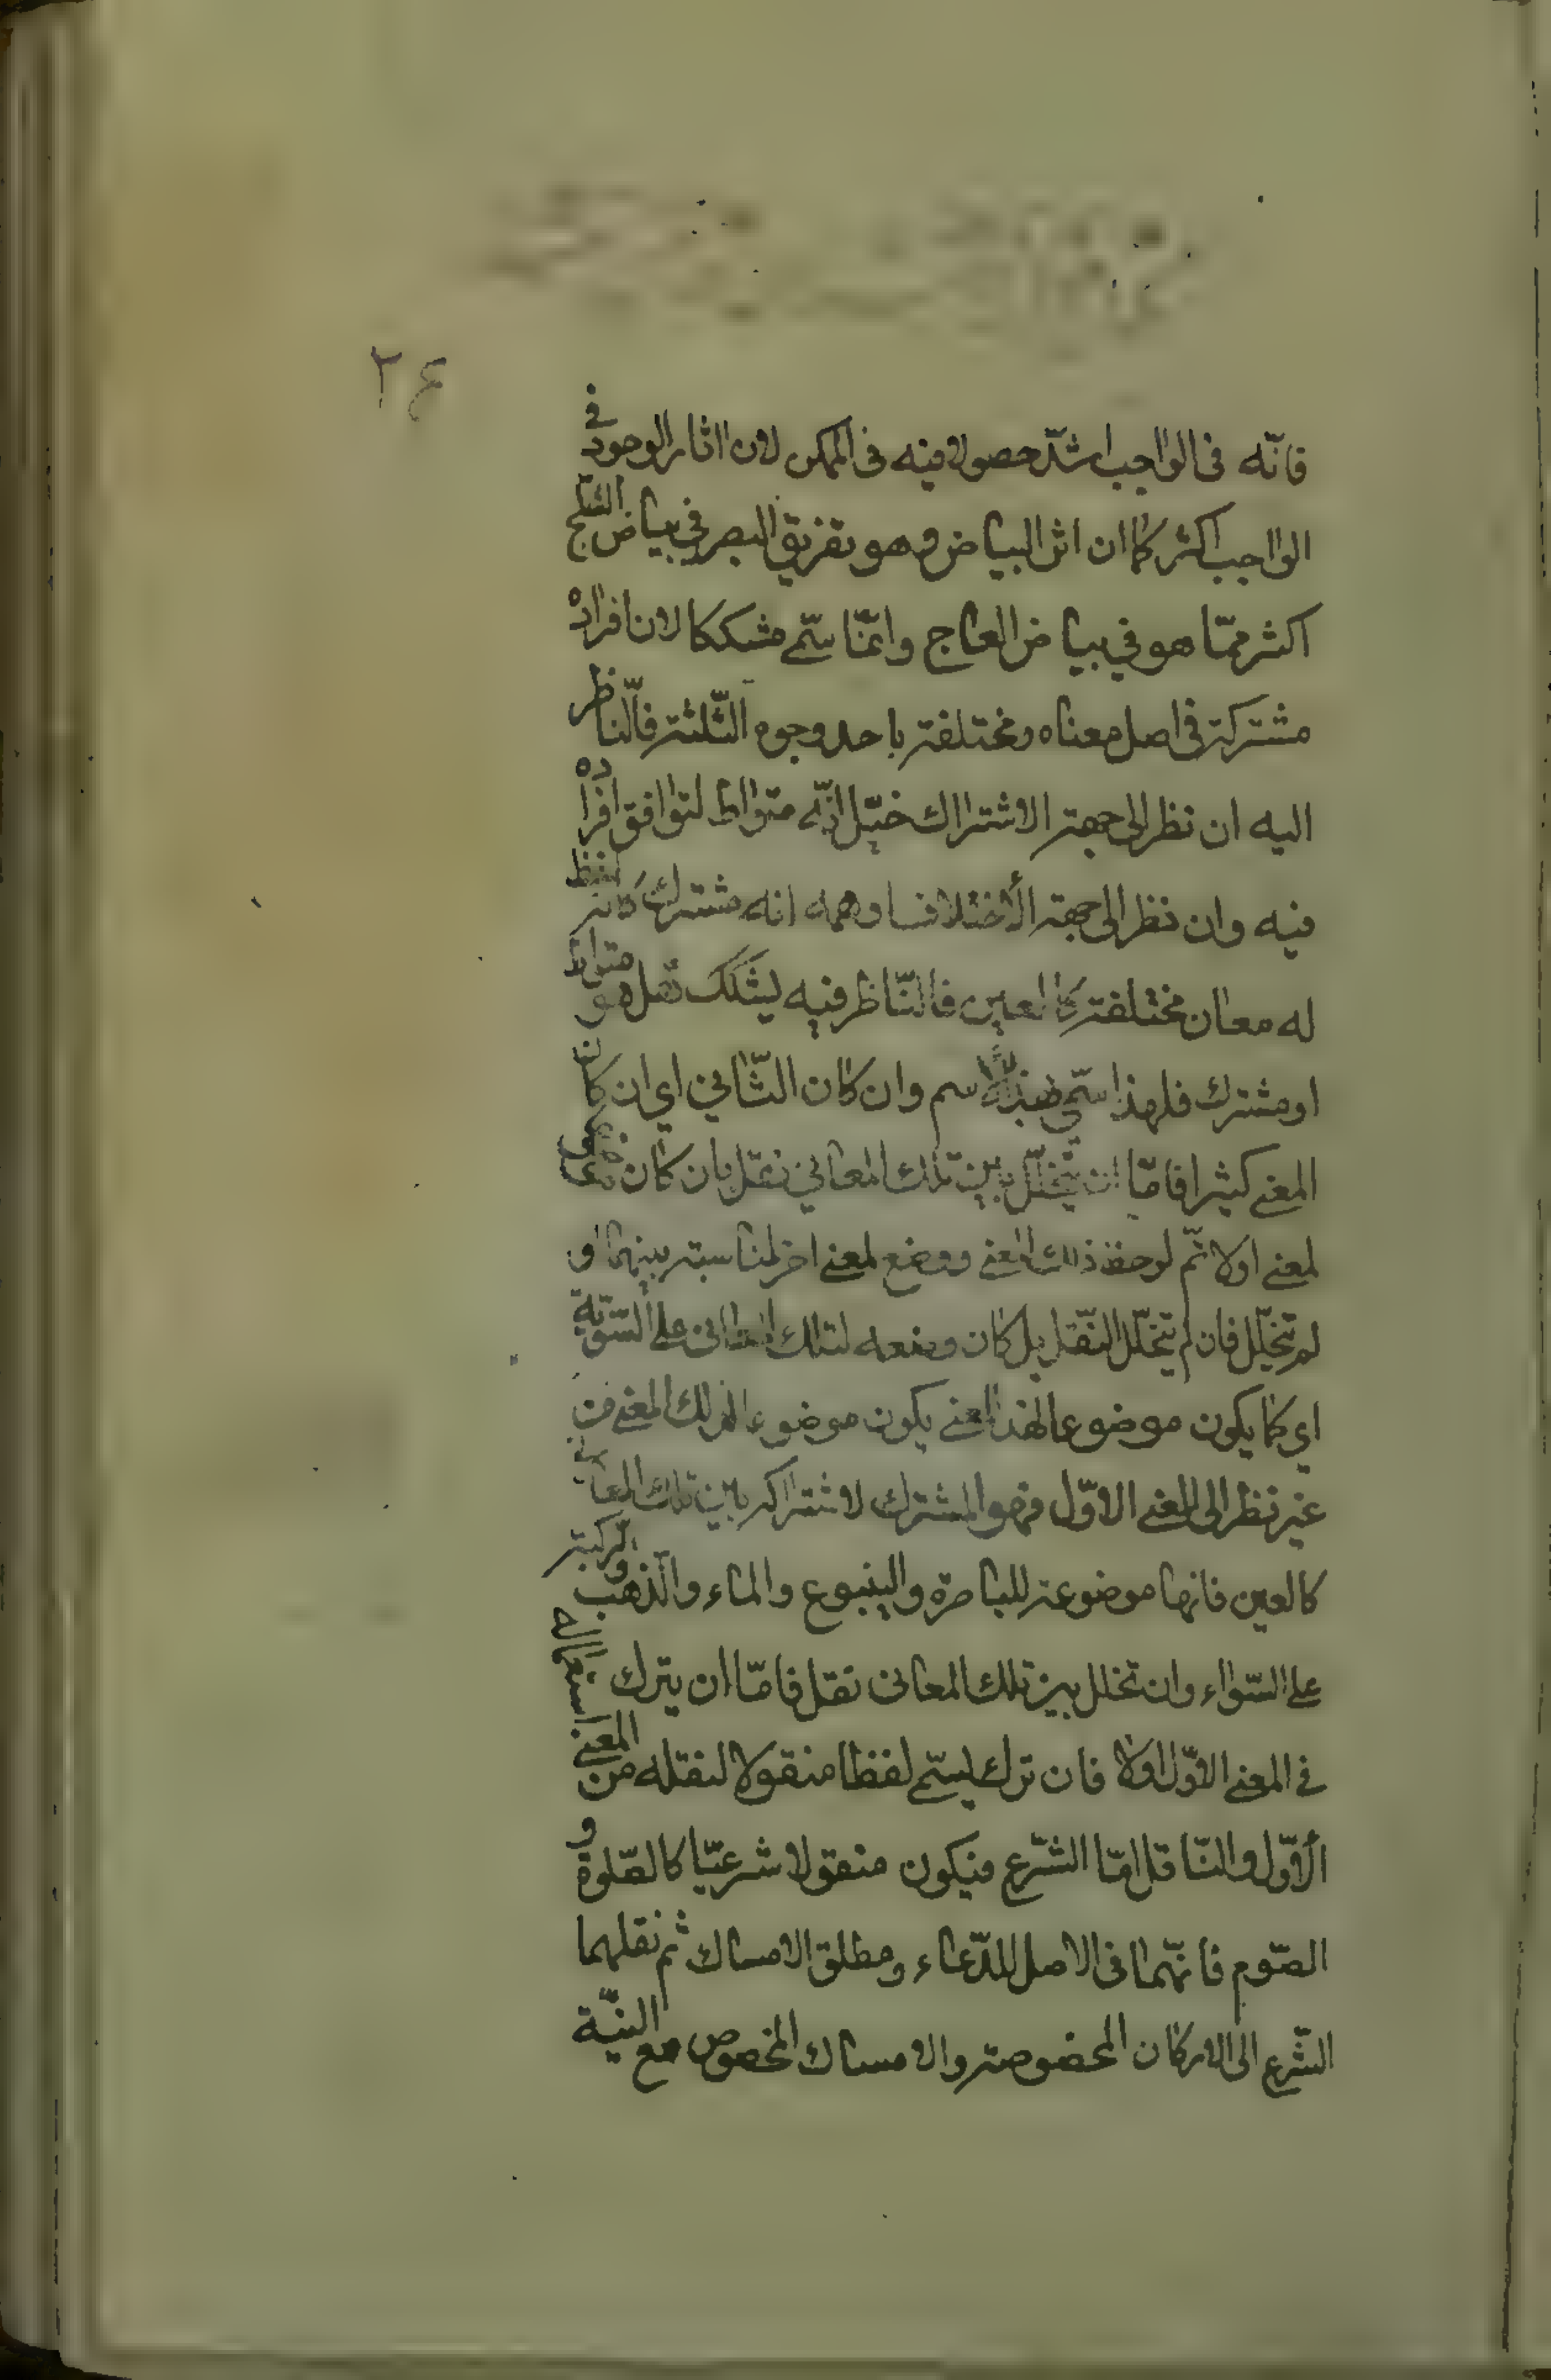 ٢۶
فانّه فى الواجب اشدّ حصولا منه فى الممكن لان اثار الوجود فى
الواجب اكثر كما ان اثر البياض وهو تفريق البصر في بياض الثلج
اكثر ممّا هو في بياض العاج وانمّا سمّى مشككا لان افراده
مشتركة فى اصل معناه ومختلفة باحد وجوه الثّلثة فالناظر
اليه ان نظر الى جهة الاشتراك خيّل انّه متواط لتوافق افراده
فيه وان نظر الى جهة الأختلاف اوهمه انه مشترك كانه لفظ
له معان مختلفة كالعين فالنّاظر فيه يشكك هل هو متواط
او مشترك فلهذا سمّى بهذا الاسم وان كان الثّاني اي ان كان
المعنى كثيرا فامّا ان يتخلّل بين تلك المعاني نقل بان كان
لمعنى اولا ثمّ لوحظ ذلك المعنى ووضع لمعنى اخر لمناسبة بينهما او
لم يتخلّل فان لم يتخلّل النّقل بل كان وضعه لتلك المعانى على السّويّة
اي كما يكون موضوعا لهذا المعنى يكون موضوعا لذلك المعنى من
غير نظر الى المعنى الاوّل فهو المشترك لاشتراكه بين تلك المعاني
كالعين فانها موضوعة للباصرة والينبوع والماء والذهب والركبة
على السّواء وان تخلل بين تلك المعانى نقل فامّا ان يترك استعماله
فى المعنى الاوّل اولا فان ترك يسمّى لفظا منقولا لنقله من المعنى
الأوّل والنّاقل امّا الشّرع فيكون منقولا شرعيّا كالصّلوة و
الصّوم فانهّما فى الاصل للدّعاء ومطلق الامساك ثم نقلهما
الشّرع الى الاركان المخصوصة والامساك المخصوص مع النيّة